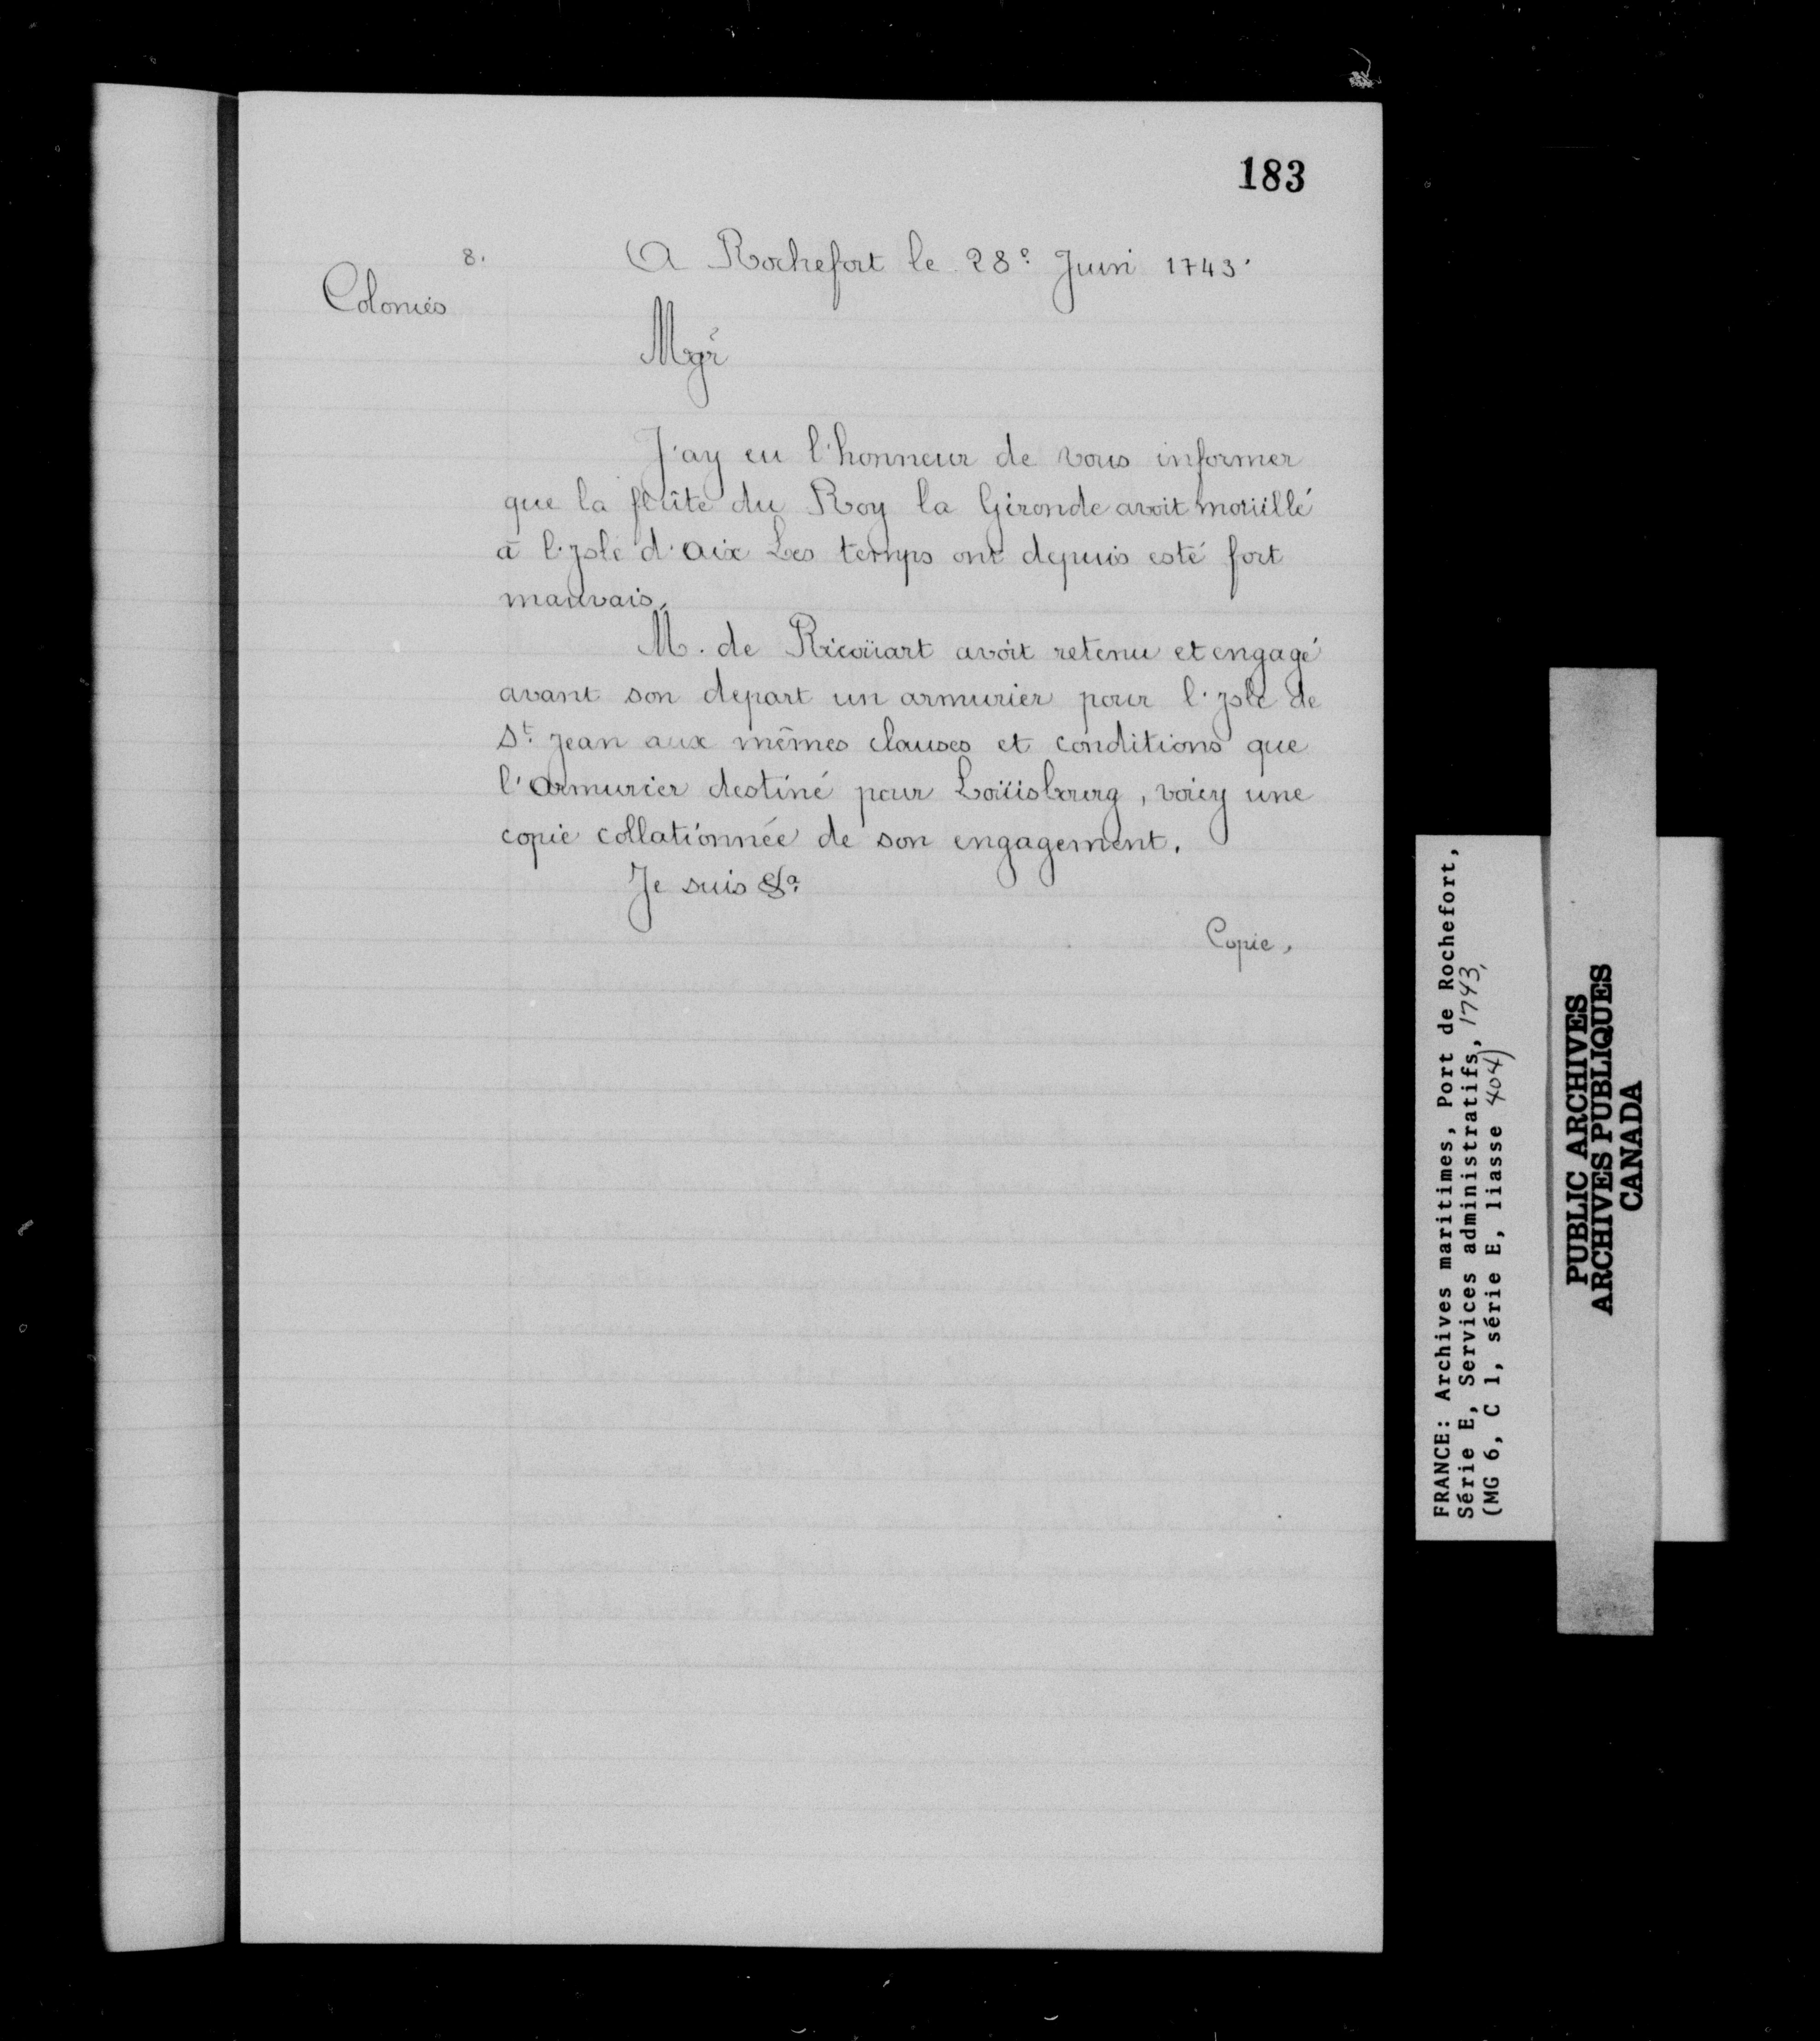 183
8.
A Rochefort le 28e Juin 1743.
Colonies
Mgr
J'ay eu l'honneur de vous informer
que la flûte du Roy la Gironde avoit moüillé
à l'Jsle d'Aix Les temps ont depuis esté fort
mauvais.
M. de Ricoüart avoit retenu et engagé
avant son depart un armurier pour l'Jsle de
St. Jean aux mêmes clauses et conditions que
l'Armurier destiné pour Loüisbourg, voicy une
copie collationnée de son engagement.
Je suis &a
Copie.
FRANCE: Archives maritimes, Port de Rochefort,
Série E, Services administratifs, 1743,
(MG 6, C 1, série E, liasse 404)
PUBLIC ARCHIVES
ARCHIVES PUBLIQUES
CANADA